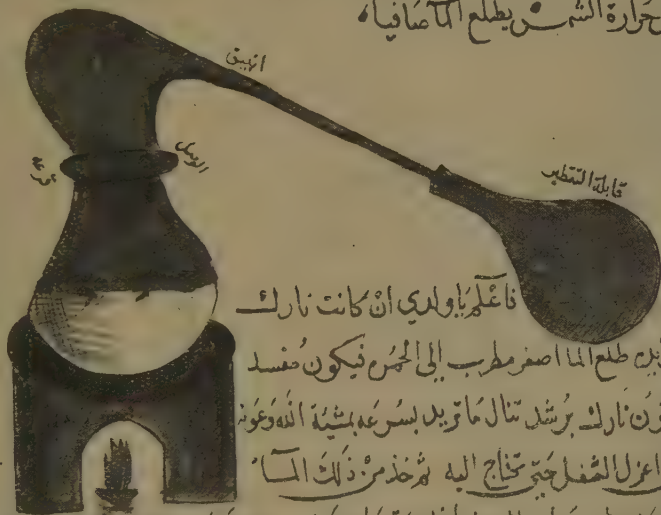 حرارة الشمس يطلع الما صافيا،
انبيق
الوصل
قابلة التقطير
فاعلم يا ولدي ان كانت نارك
طلع الما اصفر مطرب إلى الحمره فيكون مفسد
نارك برشد تنال ما تريد بسرعه بمشية الله وعونه
اعزل الثفل حتى تحتاج اليه ثم خذ من ذلك الما